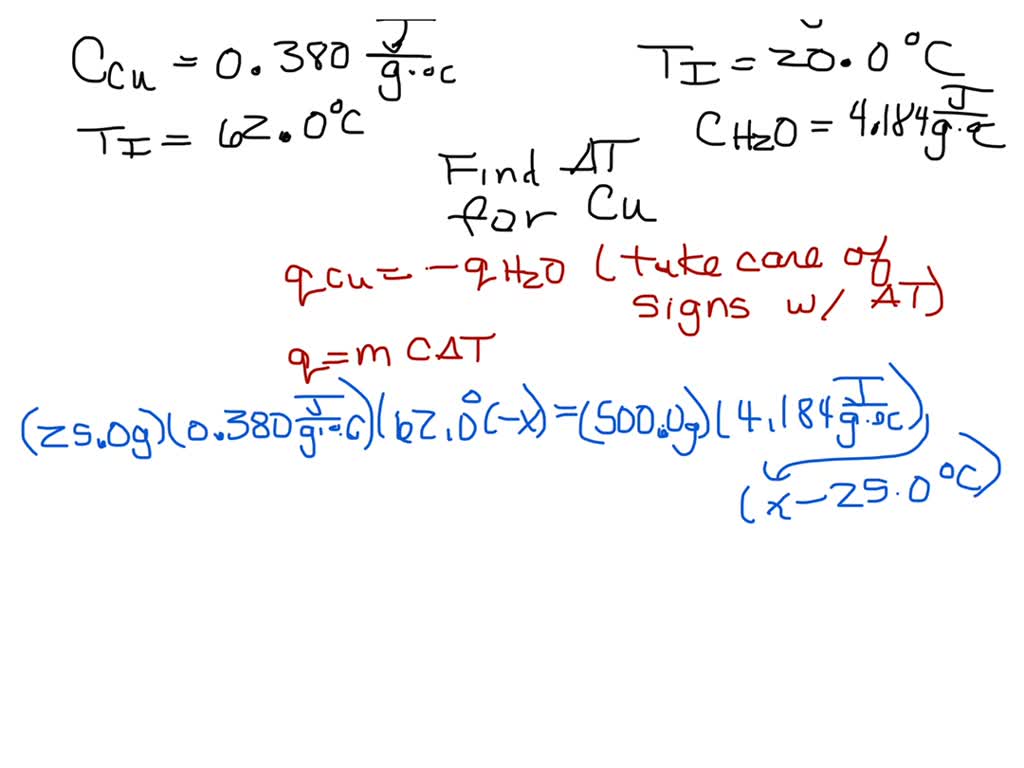 C_Cu = 0.380 J/g·°C
T_I = 62.0°C
T_I = 20.0 °C
C_H2O = 4.184 J/g·°C
Find ΔT
for Cu
q_Cu = -q_H2O (take care of
signs w/ ΔT)
q = m C Δ T
(25.0g)(0.380 J/g·°C)(62.0°C-x) = (500.0g)(4.184 J/g·°C)
(x-25.0°C)